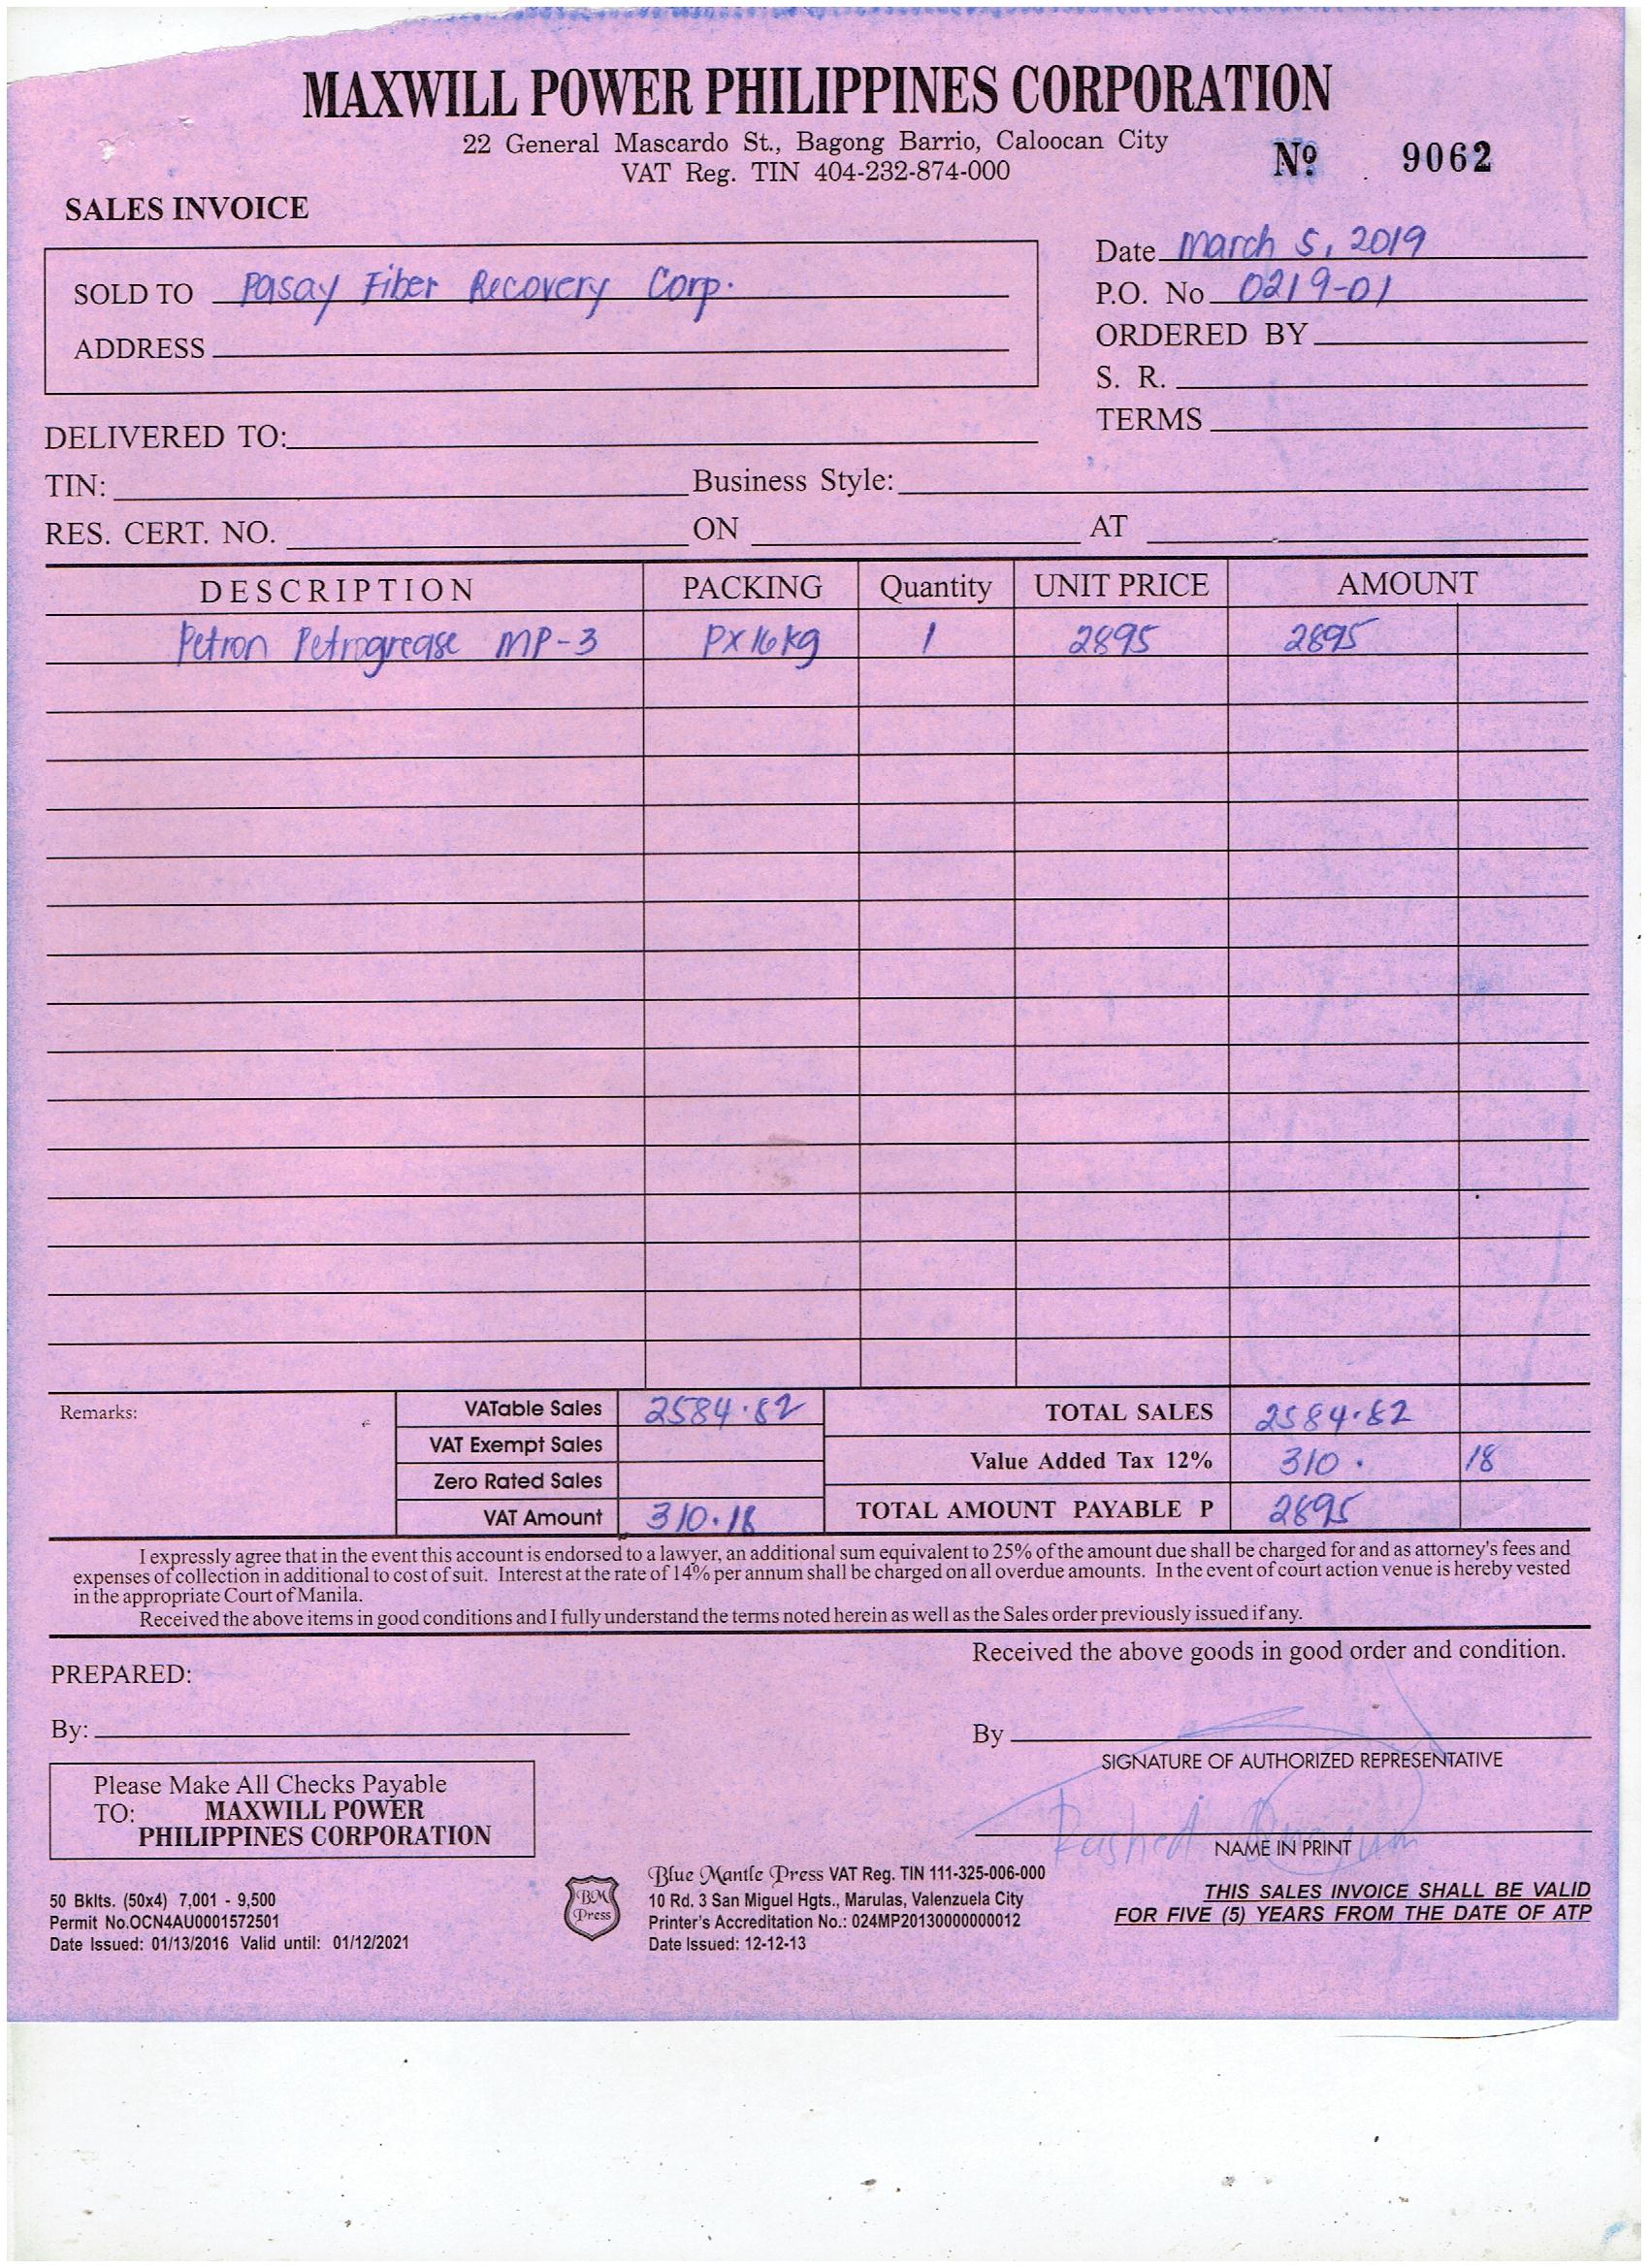 MAXWILL POWER PHILIPPINES CORPORATION
22 General Mascardo St., Bagong Barrio, Caloocan City
VAT Reg. TIN 404-232-874-000
Nº 9062
SALES INVOICE
Date March 5, 2019
SOLD TO Pasay Fiber Recovery Corp.
P.O. No 0219-01
ADDRESS
ORDERED BY
S. R.
TERMS
DELIVERED TO:
TIN: Business Style:
RES. CERT. NO. ON AT
DESCRIPTION PACKING Quantity UNIT PRICE AMOUNT
Petron Petrogrease MP-3 PX16kg 1 2895 2895
Remarks:
VATable Sales 2584.82 TOTAL SALES 2584.82
VAT Exempt Sales
Value Added Tax 12% 310. 18
Zero Rated Sales
VAT Amount 310.18 TOTAL AMOUNT PAYABLE P 2895
I expressly agree that in the event this account is endorsed to a lawyer, an additional sum equivalent to 25% of the amount due shall be charged for and as attorney's fees and
expenses of collection in additional to cost of suit. Interest at the rate of 14% per annum shall be charged on all overdue amounts. In the event of court action venue is hereby vested
in the appropriate Court of Manila.
Received the above items in good conditions and I fully understand the terms noted herein as well as the Sales order previously issued if any.
Received the above goods in good order and condition.
PREPARED:
By:
By
SIGNATURE OF AUTHORIZED REPRESENTATIVE
Please Make All Checks Payable
TO: MAXWILL POWER
PHILIPPINES CORPORATION
Rashed
NAME IN PRINT
50 Bklts. (50x4) 7,001 - 9,500
Permit No.OCN4AU0001572501
Date Issued: 01/13/2016 Valid until: 01/12/2021
BM
Press
Blue Mantle Press VAT Reg. TIN 111-325-006-000
10 Rd. 3 San Miguel Hgts., Marulas, Valenzuela City
Printer's Accreditation No.: 024MP20130000000012
Date Issued: 12-12-13
THIS SALES INVOICE SHALL BE VALID
FOR FIVE (5) YEARS FROM THE DATE OF ATP